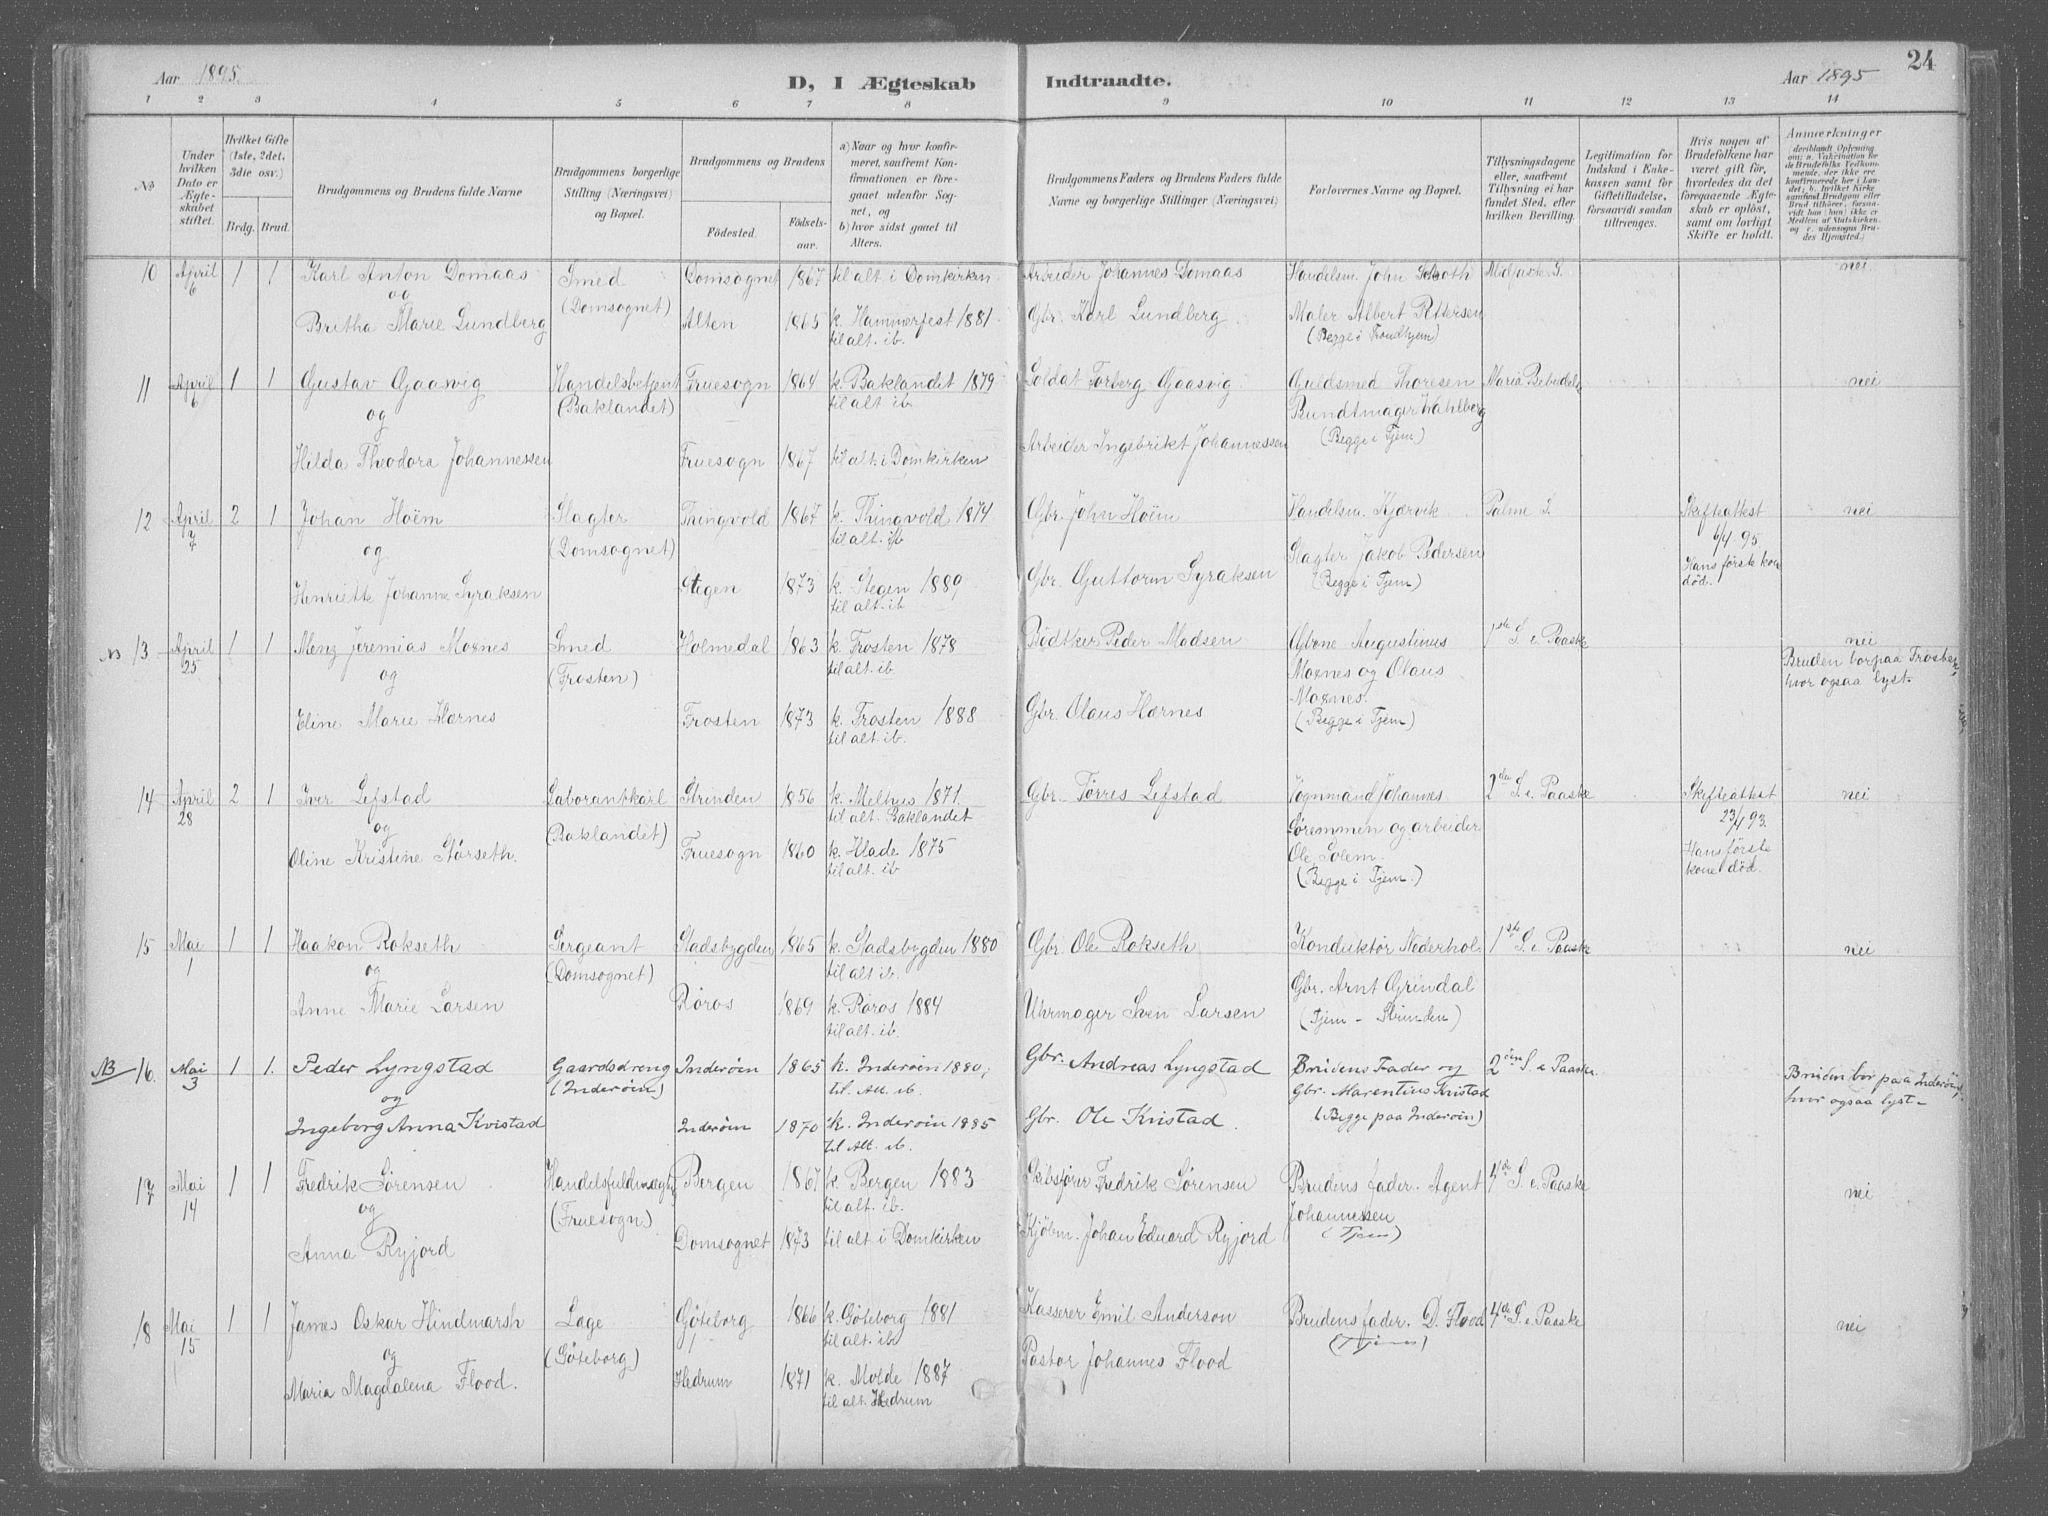 24
Aar 1895. D, I Ægteskab Indtraadte. Aar 1895
1 2 3 4 5 6 7 8 9 10 11 12 13 14
No
Under hvilken Dato er Ægteskabet stiftet.
Hvilket Gifte (1ste, 2det, 3die osv.)
Brdg. Brud.
Brudgommens og Brudens fulde Navne
Brudgommens borgerlige Stilling (Næringsvei) og Bopæl.
Brudgommens og Brudens
Fødested. Fødselsaar.
a) Naar og hvor konfirmeret, saafremt Konfirmationen er foregaaet udenfor Sognet, og
b) hvor sidst gaaet til Alters.
Brudgommens Faders og Brudens Faders fulde Navne og borgerlige Stillinger (Næringsvei)
Forlovernes Navne og Bopæl.
Tillysningsdagene eller, saafremt Tillysning ei har fundet Sted, efter hvilken Bevilling.
Legitimation for Indskud i Enkekassen samt for Giftetilladelse, forsaavidt saadan tiltrænges.
Hvis nogen af Brudefolkene har været gift før, hvorledes da det foregaaende Ægteskab er opløst, samt om lovligt Skifte er holdt.
Anmærkninger
deriblandt Oplysning om: a. Vakcination for de Brudefolks Vedkommende, der ikke ere konfirmerede her i Landet; b. hvilket Kirkesamfund Brudgom eller Brud tilhører, forsaavidt han (hun) ikke er Medlem af Statskirken, og c. udensogns Brudes Hjemsted.)
10 April 6 1 1 Karl Anton Domaas Smed Domsognet 1867 til alt. i Domkirken Arbeider Johannes Domaas Handelsm. John Schoth Midfaste S. nei
og (Domsognet)
Britha Marie Lundberg Alten 1865 k. Hammerfest 1881 Gbr. Karl Lundberg Maler Albert Pettersen
til alt. ib. (Begge i Trondhjem)
11 April 6 1 1 Gustav Gaasvig Handelsbetjent Fruesogn 1864 k. Baklandet 1879 Soldat Torberg Gaasvig Guldsmed Thoresen Maria Bebudelse nei
og (Baklandet) til alt ib. Bundtmager Wahlberg
(Begge i Tjem)
Hilda Theodora Johannessen Fruesogn 1867 til alt. i Domkirken Arbeider Ingebrikt Johannessen
12 April 7 2 1 Johan Hoëm Slagter Thingvold 1867 k. Thingvold 1874 Gbr. John Hoëm Handelsm. Kjærvik Palme S. Skifteattest nei
og (Domsognet) til alt. ib Slagter Jakob Pedersen 6/4 95.
Henriette Johanne Syraksen Stegen 1873 k. Stegen 1889 Gbr. Guttorm Syraksen (Begge i Tjem) Hans første kone død.
til alt. ib
NB 13 April 25 1 1 Menz Jeremias Moxnes Smed Holmedal 1863 k. Frosten 1878 Bødtker Peder Madsen Gbne Augustinus 1ste S. e. Paaske nei
og (Frosten) til alt. ib. Moxnes og Olaus Bruden bor paa Frosten,
Moxnes. hvor ogsaa lyst.
Eline Marie Hærnes Frosten 1873 k. Frosten 1888 Gbr. Olaus Hærnes (Begge i Tjem)
til alt. ib.
14 April 28 2 1 Iver Lefstad Laborantkarl Strinden 1856 k. Melhus 1871. Gbr. Tørres Lefstad Tøgnmand Johannes 2den S. e. Paaske Skifteattest nei
og (Baklandet) til alt. Baklandet Søremmen og arbeider 23/1 93.
Oline Kristine Størseth. Fruesogn 1860 k. Hlade 1875 Ole Solem. Hans første
til alt. ib (Begge i Tjem.) kone død.
15 Mai 1 1 1 Haakon Rokseth Sergeant Stadsbygden 1865 k. Stadsbygden 1880 Gbr Ole Rokseth Konduktør Nederhol. 1ste S. e. Paaske nei
og (Domsognet) til alt ib. Gbr. Arnt Grindal
Anne Marie Larsen Røros 1869 k. Røros 1884 Uhrmager Sven Larsen (Tjem - Strinden)
til alt. ib.
NB 16. Mai 3 1 1. Peder Lyngstad Gaardsdreng Inderøin 1865 k. Inderøin 1880, Gbr. Andreas Lyngstad Brudens Fader og 2den S. e Paaske Bruden bor paa Inderøin,
og (Inderøin) til Alt. ib. Gbr. Marentius Kvistad hvor ogsaa lyst-
Ingeborg Anna Kvistad Inderøin 1870 k. Inderøin 1885 Gbr. Ole Kvistad. (Begge paa Inderøin)
til Alt. ib
17 Mai 14 1 1 Fredrik Sørensen Handelsfuldmægtig Bergen 1867 k. Bergen 1883 Skibsfører Fredrik Sørensen Brudens fader. Agent 4de S. e. Paaske nei
og (Fruesogn) til alt. ib. Johannessen
Anna Ryjord Domsognet 1873 til alt i Domkirken Kjøbm. Johan Eduard Ryjord (Tjem)
18 Mai 15 1 1 James Oskar Hindmarsh Læge Gøteborg 1866 k. Gøteborg 1881 Kasserer Emil Anderson Brudens fader. D. Flood 4de S. e. Paaske nei
og (Gøteborg) til alt. ib (Tjem)
Maria Magdalena Flood. Hedrum 1871 k. Molde 1887 Pastor Johannes Flood
til alt. Hedrum